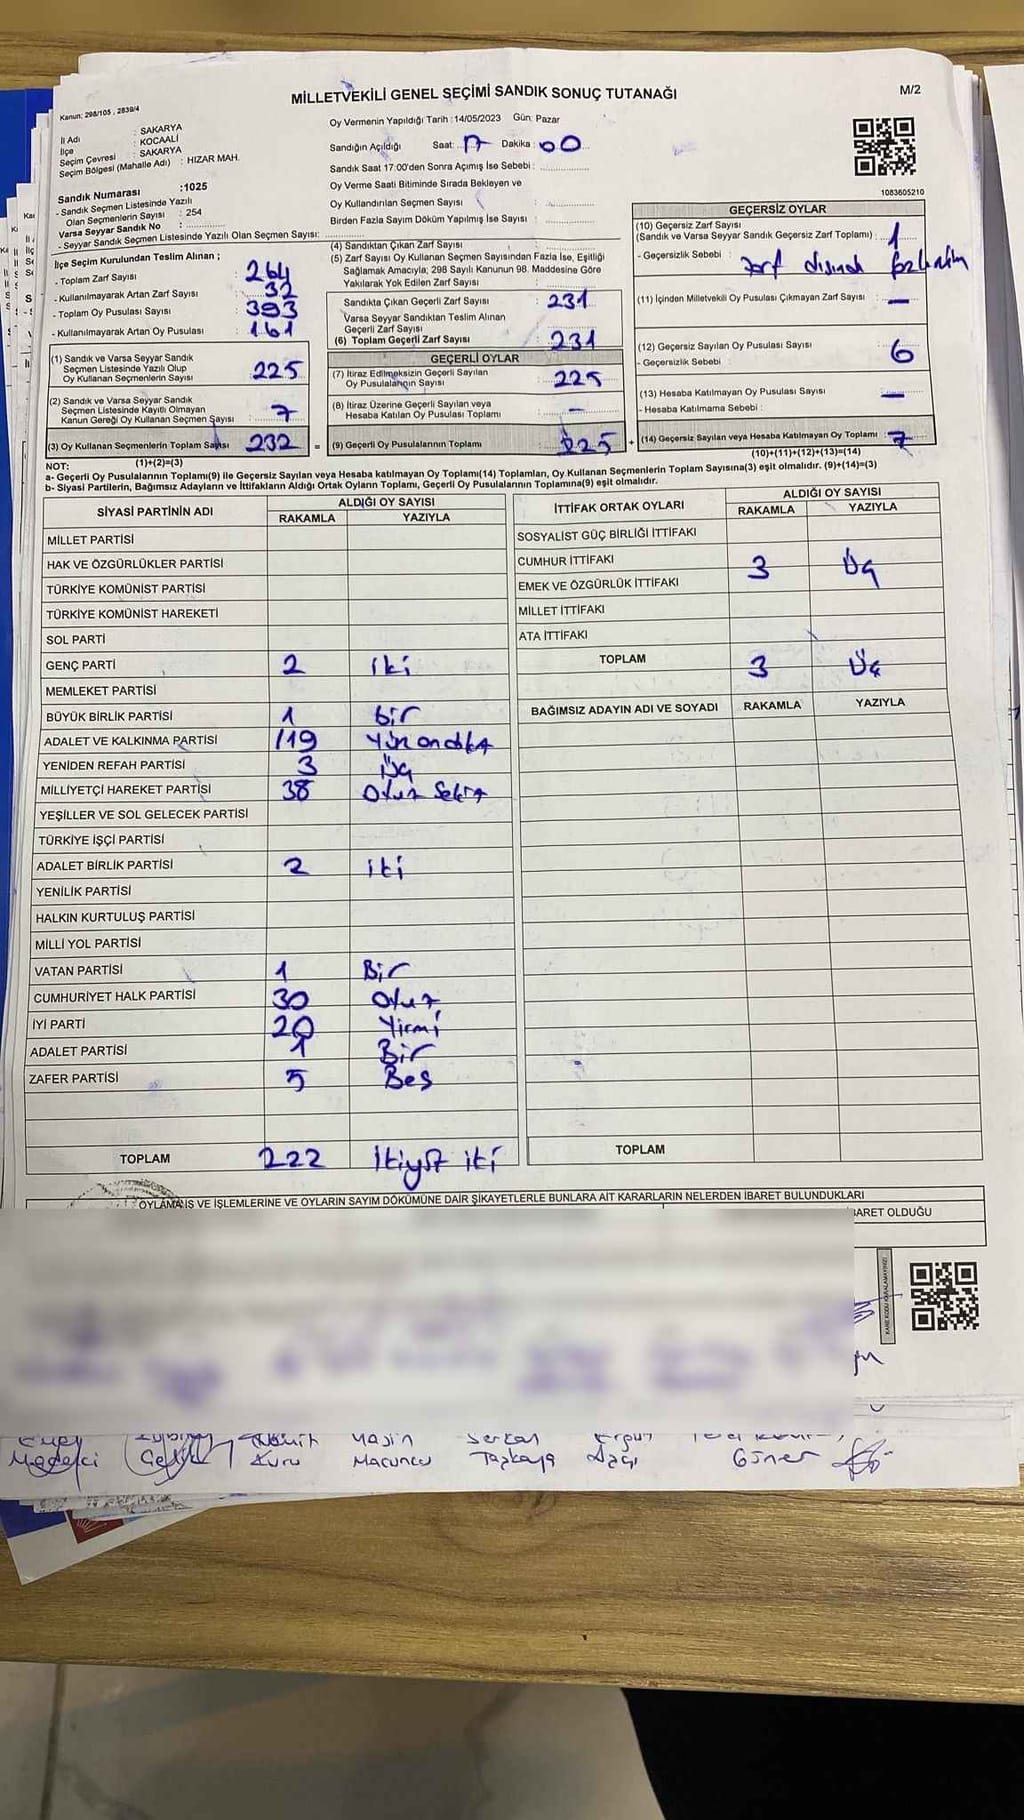 MİLLETVEKİLİ GENEL SEÇİMİ SANDIK SONUÇ TUTANAĞI
M/2
Kanun: 298/105 , 2839/4
İl Adı : SAKARYA
İlçe : KOCAALİ
Seçim Çevresi : SAKARYA
Seçim Bölgesi (Mahalle Adı) : HIZAR MAH.
Sandık Numarası :1025
- Sandık Seçmen Listesinde Yazılı
Olan Seçmenlerin Sayısı : 254
Varsa Seyyar Sandık No :
- Seyyar Sandık Seçmen Listesinde Yazılı Olan Seçmen Sayısı:
Oy Vermenin Yapıldığı Tarih :14/05/2023 Gün: Pazar
Sandığın Açıldığı Saat: 17 Dakika : 00
Sandık Saat 17:00'den Sonra Açımış İse Sebebi :
Oy Verme Saati Bitiminde Sırada Bekleyen ve
Oy Kullandırılan Seçmen Sayısı :
Birden Fazla Sayım Döküm Yapılmış İse Sayısı :
1083605210
İlçe Seçim Kurulundan Teslim Alınan ;
- Toplam Zarf Sayısı : 264
- Kullanılmayarak Artan Zarf Sayısı : 32
- Toplam Oy Pusulası Sayısı : 393
- Kullanılmayarak Artan Oy Pusulası : 161
(1) Sandık ve Varsa Seyyar Sandık
Seçmen Listesinde Yazılı Olup
Oy Kullanan Seçmenlerin Sayısı : 225
(2) Sandık ve Varsa Seyyar Sandık
Seçmen Listesinde Kayıtlı Olmayan
Kanun Gereği Oy Kullanan Seçmen Sayısı : 7
(3) Oy Kullanan Seçmenlerin Toplam Sayısı : 232
(1)+(2)=(3)
(4) Sandıktan Çıkan Zarf Sayısı :
(5) Zarf Sayısı Oy Kullanan Seçmen Sayısından Fazla İse, Eşitliği
Sağlamak Amacıyla; 298 Sayılı Kanunun 98. Maddesine Göre
Yakılarak Yok Edilen Zarf Sayısı :
Sandıkta Çıkan Geçerli Zarf Sayısı : 231
Varsa Seyyar Sandıktan Teslim Alınan
Geçerli Zarf Sayısı :
(6) Toplam Geçerli Zarf Sayısı : 231
GEÇERLİ OYLAR
(7) İtiraz Edilmeksizin Geçerli Sayılan
Oy Pusulalarının Sayısı : 225
(8) İtiraz Üzerine Geçerli Sayılan veya
Hesaba Katılan Oy Pusulası Toplamı : -
= (9) Geçerli Oy Pusulalarının Toplamı : 225
GEÇERSİZ OYLAR
(10) Geçersiz Zarf Sayısı
(Sandık ve Varsa Seyyar Sandık Geçersiz Zarf Toplamı) : 1
- Geçersizlik Sebebi :
(11) İçinden Milletvekili Oy Pusulası Çıkmayan Zarf Sayısı : -
(12) Geçersiz Sayılan Oy Pusulası Sayısı : 6
- Geçersizlik Sebebi :
(13) Hesaba Katılmayan Oy Pusulası Sayısı : -
- Hesaba Katılmama Sebebi :
+ (14) Geçersiz Sayılan veya Hesaba Katılmayan Oy Toplamı : 7
(10)+(11)+(12)+(13)=(14)
NOT:
a- Geçerli Oy Pusulalarının Toplamı(9) ile Geçersiz Sayılan veya Hesaba katılmayan Oy Toplamı(14) Toplamları, Oy Kullanan Seçmenlerin Toplam Sayısına(3) eşit olmalıdır. (9)+(14)=(3)
b- Siyasi Partilerin, Bağımsız Adayların ve İttifakların Aldığı Ortak Oyların Toplamı, Geçerli Oy Pusulalarının Toplamına(9) eşit olmalıdır.
SİYASİ PARTİNİN ADI
ALDIĞI OY SAYISI
RAKAMLA YAZIYLA
MİLLET PARTİSİ
HAK VE ÖZGÜRLÜKLER PARTİSİ
TÜRKİYE KOMÜNİST PARTİSİ
TÜRKİYE KOMÜNİST HAREKETİ
SOL PARTİ
GENÇ PARTİ 2 iki
MEMLEKET PARTİSİ
BÜYÜK BİRLİK PARTİSİ 1 bir
ADALET VE KALKINMA PARTİSİ 119
YENİDEN REFAH PARTİSİ 3 üç
MİLLİYETÇİ HAREKET PARTİSİ 38 Otuz Sekiz
YEŞİLLER VE SOL GELECEK PARTİSİ
TÜRKİYE İŞÇİ PARTİSİ
ADALET BİRLİK PARTİSİ 2 iki
YENİLİK PARTİSİ
HALKIN KURTULUŞ PARTİSİ
MİLLİ YOL PARTİSİ
VATAN PARTİSİ 1 Bir
CUMHURİYET HALK PARTİSİ 30 Otuz
İYİ PARTİ 20 Yirmi
ADALET PARTİSİ 1 Bir
ZAFER PARTİSİ 5 Beş
TOPLAM 222 ikiyüz iki
İTTİFAK ORTAK OYLARI
ALDIĞI OY SAYISI
RAKAMLA YAZIYLA
SOSYALİST GÜÇ BİRLİĞİ İTTİFAKI
CUMHUR İTTİFAKI 3 Üç
EMEK VE ÖZGÜRLÜK İTTİFAKI
MİLLET İTTİFAKI
ATA İTTİFAKI
TOPLAM 3 Üç
BAĞIMSIZ ADAYIN ADI VE SOYADI RAKAMLA YAZIYLA
TOPLAM
OYLAMA İŞ VE İŞLEMLERİNE VE OYLARIN SAYIM DÖKÜMÜNE DAİR ŞİKAYETLERLE BUNLARA AİT KARARLARIN NELERDEN İBARET BULUNDUKLARI
BARET OLDUĞU
KARE KODU KARALAMAYINIZ!
Yasin Serkan
Kuru Macuncu Taşkaya Güner